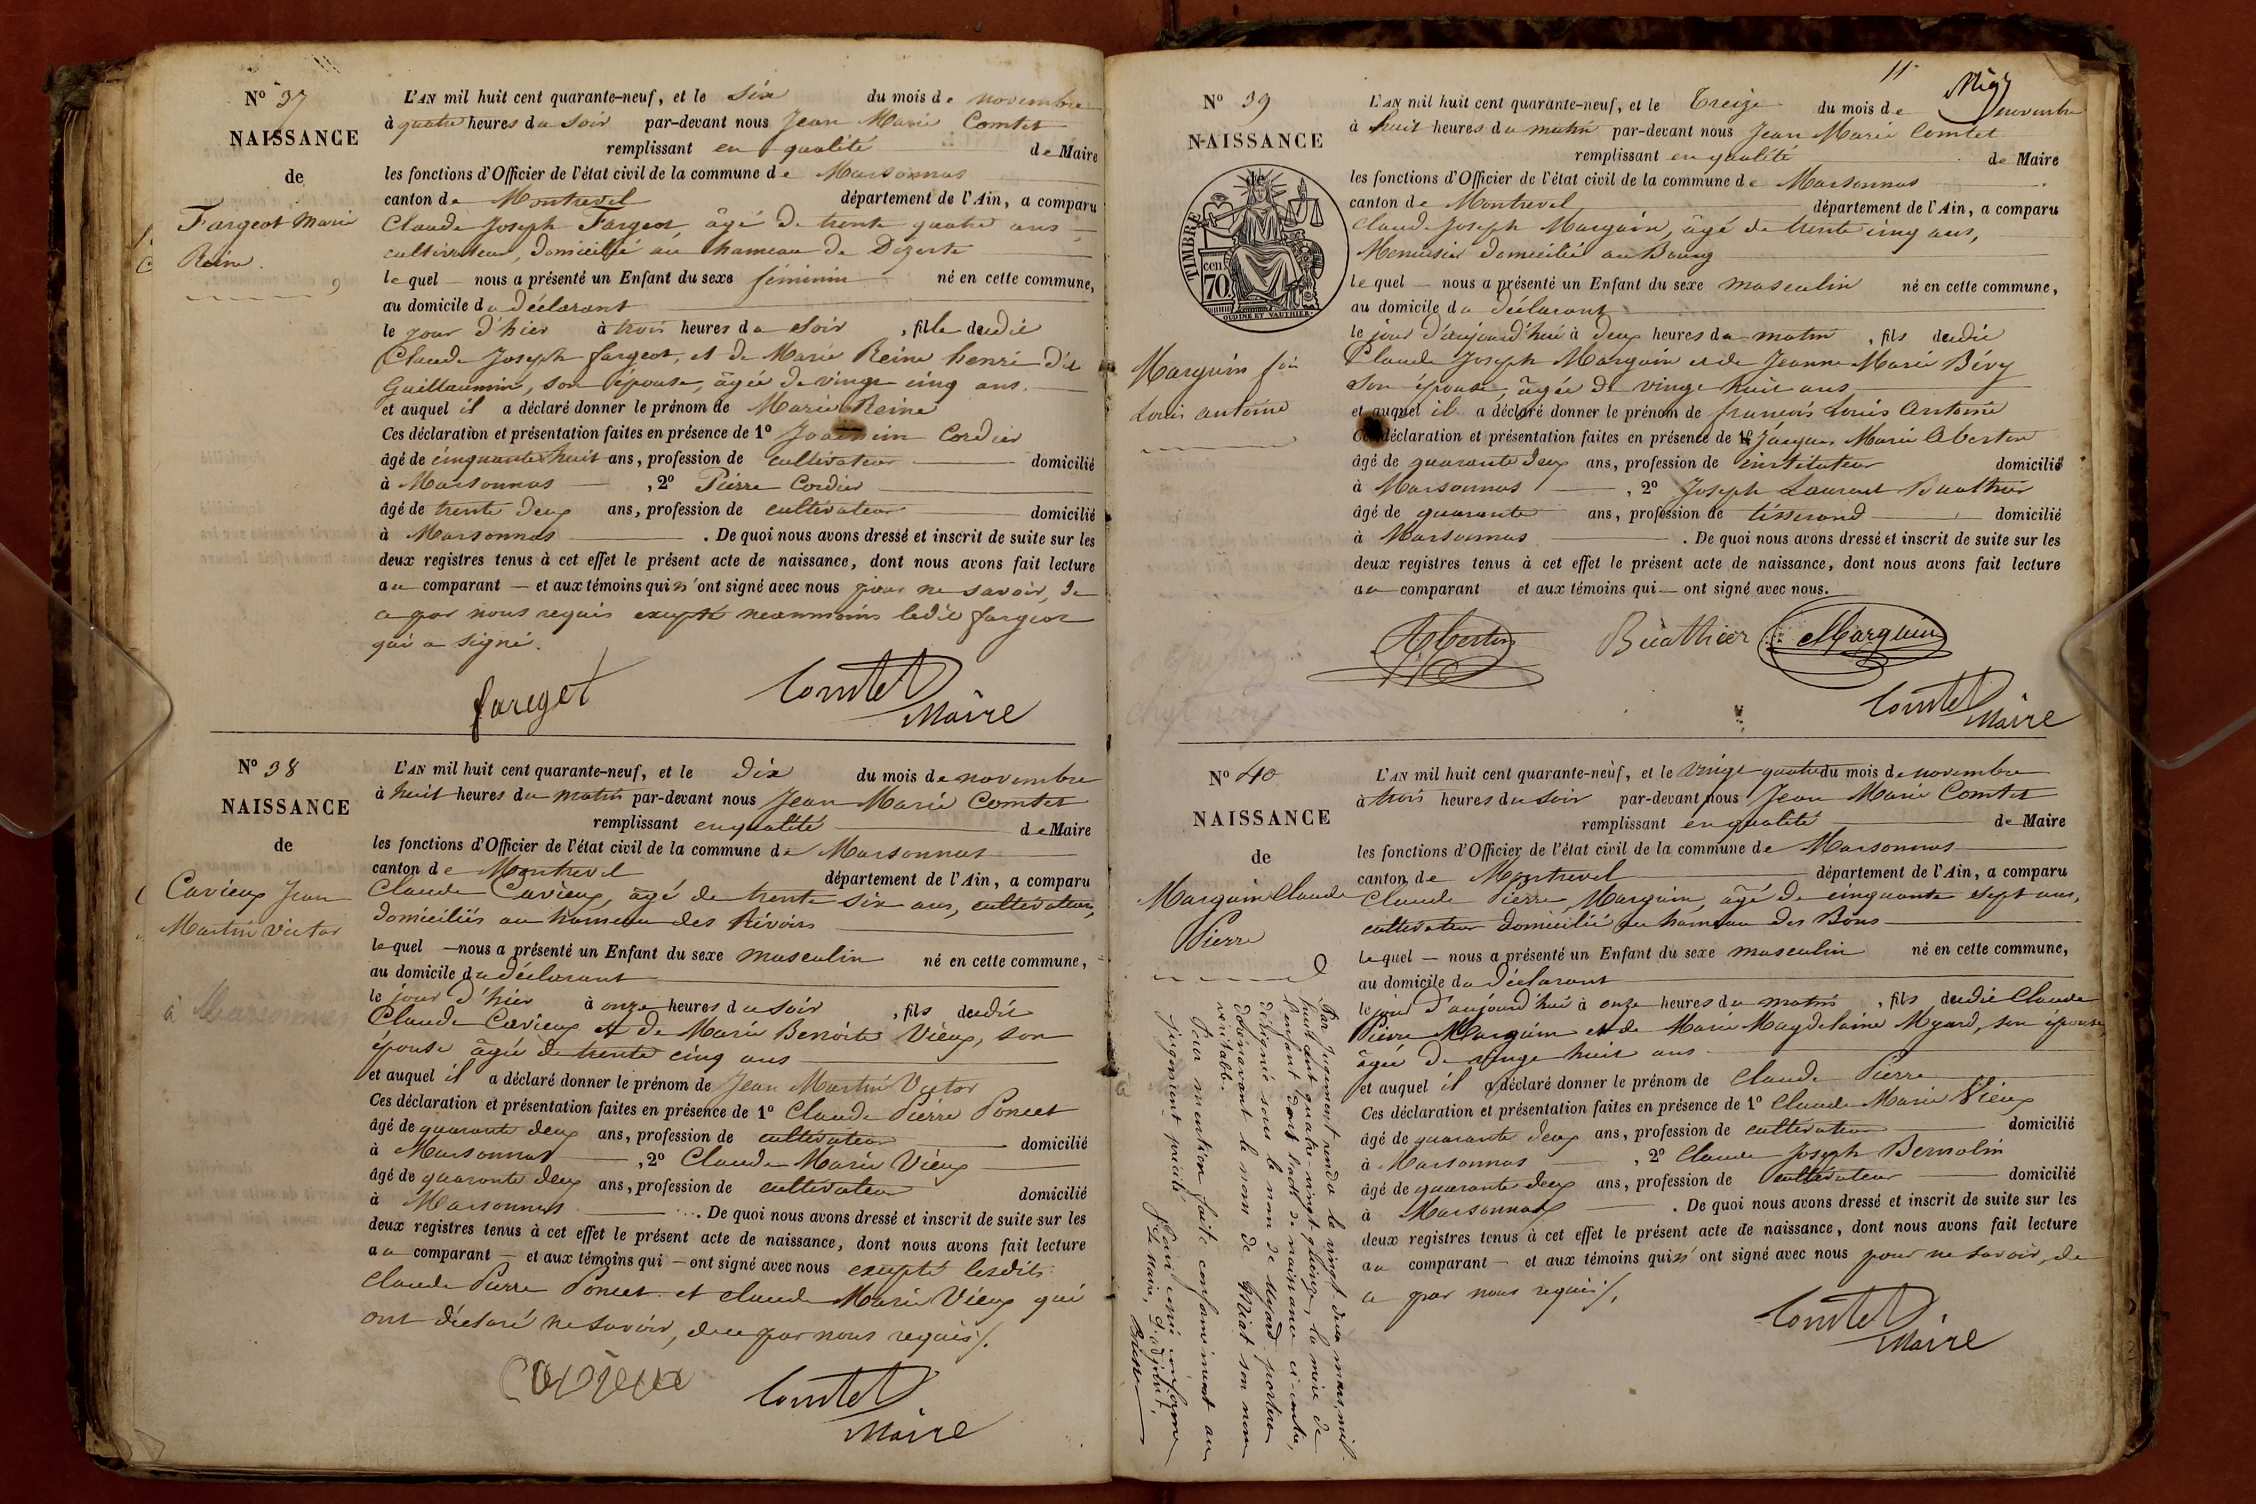 N° 37
NAISSANCE
de
Fargeot Marie
Reine
L'AN mil huit cent quarante-neuf, et le six du mois de novembre
à quatre heures du soir par-devant nous Jean Marie Comtet
remplissant en qualité de Maire
les fonctions d'Officier de l'état civil de la commune de Marsonnas
canton de Montrevel département de l'Ain, a comparu
Claude Joseph Fargeot, âgé de trente quatre ans
cultivateur, domicilié au hameau de Dezerte
lequel nous a présenté un Enfant du sexe féminin né en cette commune,
au domicile du déclarant
le jour d'hier à trois heures du soir, fille dudit
Claude Joseph fargeot, et de Marie Reine henri dit
Guillaumin, son épouse, âgée de vingt cinq ans.
et auquel il a déclaré donner le prénom de Marie Reine
Ces déclaration et présentation faites en présence de 1° Cordier
âgé de cinquante huit ans, profession de cultivateur domicilié
à Marsonnas, 2° Pierre Cordier
âgé de trente deux ans, profession de cultivateur domicilié
à Marsonnas. De quoi nous avons dressé et inscrit de suite sur les
deux registres tenus à cet effet le présent acte de naissance, dont nous avons fait lecture
au comparant et aux témoins qui n'ont signé avec nous pour ne savoir, de
ce par nous requis excepté neanmoins ledit fargeot
qui a signé.
fareget Comtet
Maire
N° 38
NAISSANCE
de
Cavieux Jean
Martin Victor
à Marsonnas
L'AN mil huit cent quarante-neuf, et le dix du mois de novembre
à huit heures du matin par-devant nous Jean Marie Comtet
remplissant en qualité de Maire
les fonctions d'Officier de l'état civil de la commune de Marsonnas
canton de Montrevel département de l'Ain, a comparu
Claude Cavieux, âgé de trente six ans, cultivateur,
domiciliés au hameau des Rivoirs
lequel nous a présenté un Enfant du sexe masculin né en cette commune,
au domicile du déclarant
le jour d'hier à onze heures du soir, fils dudit
Claude Cavieux et de Marie Benoite Vieux, son
épouse âgée de trente cinq ans
et auquel il a déclaré donner le prénom de Jean Martin Victor
Ces déclaration et présentation faites en présence de 1° Claude Pierre Poncet
âgé de quarante deux ans, profession de cultivateur domicilié
à Marsonnas, 2° Claude Marie Vieux
âgé de quarante deux ans, profession de cultivateur domicilié
à Marsonnas. De quoi nous avons dressé et inscrit de suite sur les
deux registres tenus à cet effet le présent acte de naissance, dont nous avons fait lecture
au comparant et aux témoins qui ont signé avec nous excepté lesdits
Claude Pierre Poncet et Claude Marie Vieux qui
ont déclaré ne savoir, de ce par nous requis/.
Comtet
Maire
11
N° 39
NAISSANCE
de
TIMBRE
70 cen.
OUDINE ET VAUTHIER
Marguin
Louis antoine
L'AN mil huit cent quarante-neuf, et le Treize du mois de novembre
à huit heures du matin par-devant nous Jean Marie Comtet
remplissant en qualité de Maire
les fonctions d'Officier de l'état civil de la commune de Marsonnas
canton de Montrevel département de l'Ain, a comparu
Claude Joseph Marguin, âgé de trente cinq ans,
Menuisier domicilié au Bourg
lequel nous a présenté un Enfant du sexe masculin né en cette commune,
au domicile du déclarant
le jour d'aujourd'hui à deux heures du matin, fils dudit
Claude Joseph Marguin et de Jeanne Marie Bévy
son épouse, âgée de vingt huit ans
et auquel il a déclaré donner le prénom de françois Louis Antoine
Ces déclaration et présentation faites en présence de 1° Jacques Marie Aberton
âgé de quarante deux ans, profession de instituteur domicilié
à Marsonnas, 2° Joseph Laurent Buathier
âgé de quarante ans, profession de tisserand domicilié
à Marsonnas. De quoi nous avons dressé et inscrit de suite sur les
deux registres tenus à cet effet le présent acte de naissance, dont nous avons fait lecture
au comparant et aux témoins qui ont signé avec nous.
Buathier Marguin
Comtet
Maire
N° 40
NAISSANCE
de
Marguin Claude
Pierre
L'AN mil huit cent quarante-neuf, et le vingt quatre du mois de novembre
à trois heures du soir par-devant nous Jean Marie Comtet
remplissant en qualité de Maire
les fonctions d'Officier de l'état civil de la commune de Marsonnas
canton de Montrevel département de l'Ain, a comparu
Claude Pierre Marguin, âgé de cinquante sept ans,
cultivateur domicilié au hameau des Bons
lequel nous a présenté un Enfant du sexe masculin né en cette commune,
au domicile du déclarant
le jour d'aujourd'hui à onze heures du matin, fils dudit Claude
Pierre Marguin et de Marie Magdelaine Myard, son épouse,
âgée de vingt huit ans
et auquel il a déclaré donner le prénom de Claude Pierre
Ces déclaration et présentation faites en présence de 1° Claude Marie Vieux
âgé de quarante deux ans, profession de cultivateur domicilié
à Marsonnas, 2° Claude Joseph Bernolin
âgé de quarante deux ans, profession de cultivateur domicilié
à Marsonnas. De quoi nous avons dressé et inscrit de suite sur les
deux registres tenus à cet effet le présent acte de naissance, dont nous avons fait lecture
au comparant et aux témoins qui n'ont signé avec nous pour ne savoir, de
ce par nous requis/.
Comtet
Maire
Par Jugement rendu le vingt-deux mars, mil-
huit cent quatre-vingt-quinze, la mère de
l'enfant dont l'acte de naissance ci-contre,
désignée sous le nom de Myard portera
dorénavant le nom de Miat son nom
véritable.
Pour mention faite conformément au
jugement précité.
conforme
Le Maire, L'adjoint,